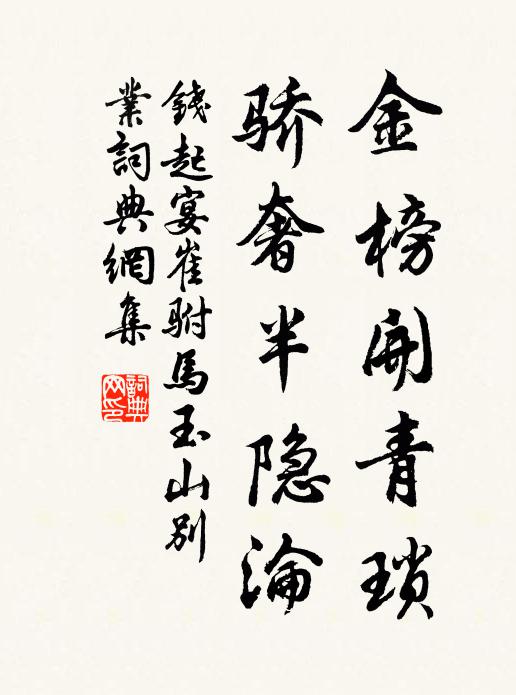 金榜開青瑣
骄奢半隐淪
錢起宴崔駙馬玉山別
業詞典網集
詞典
网印